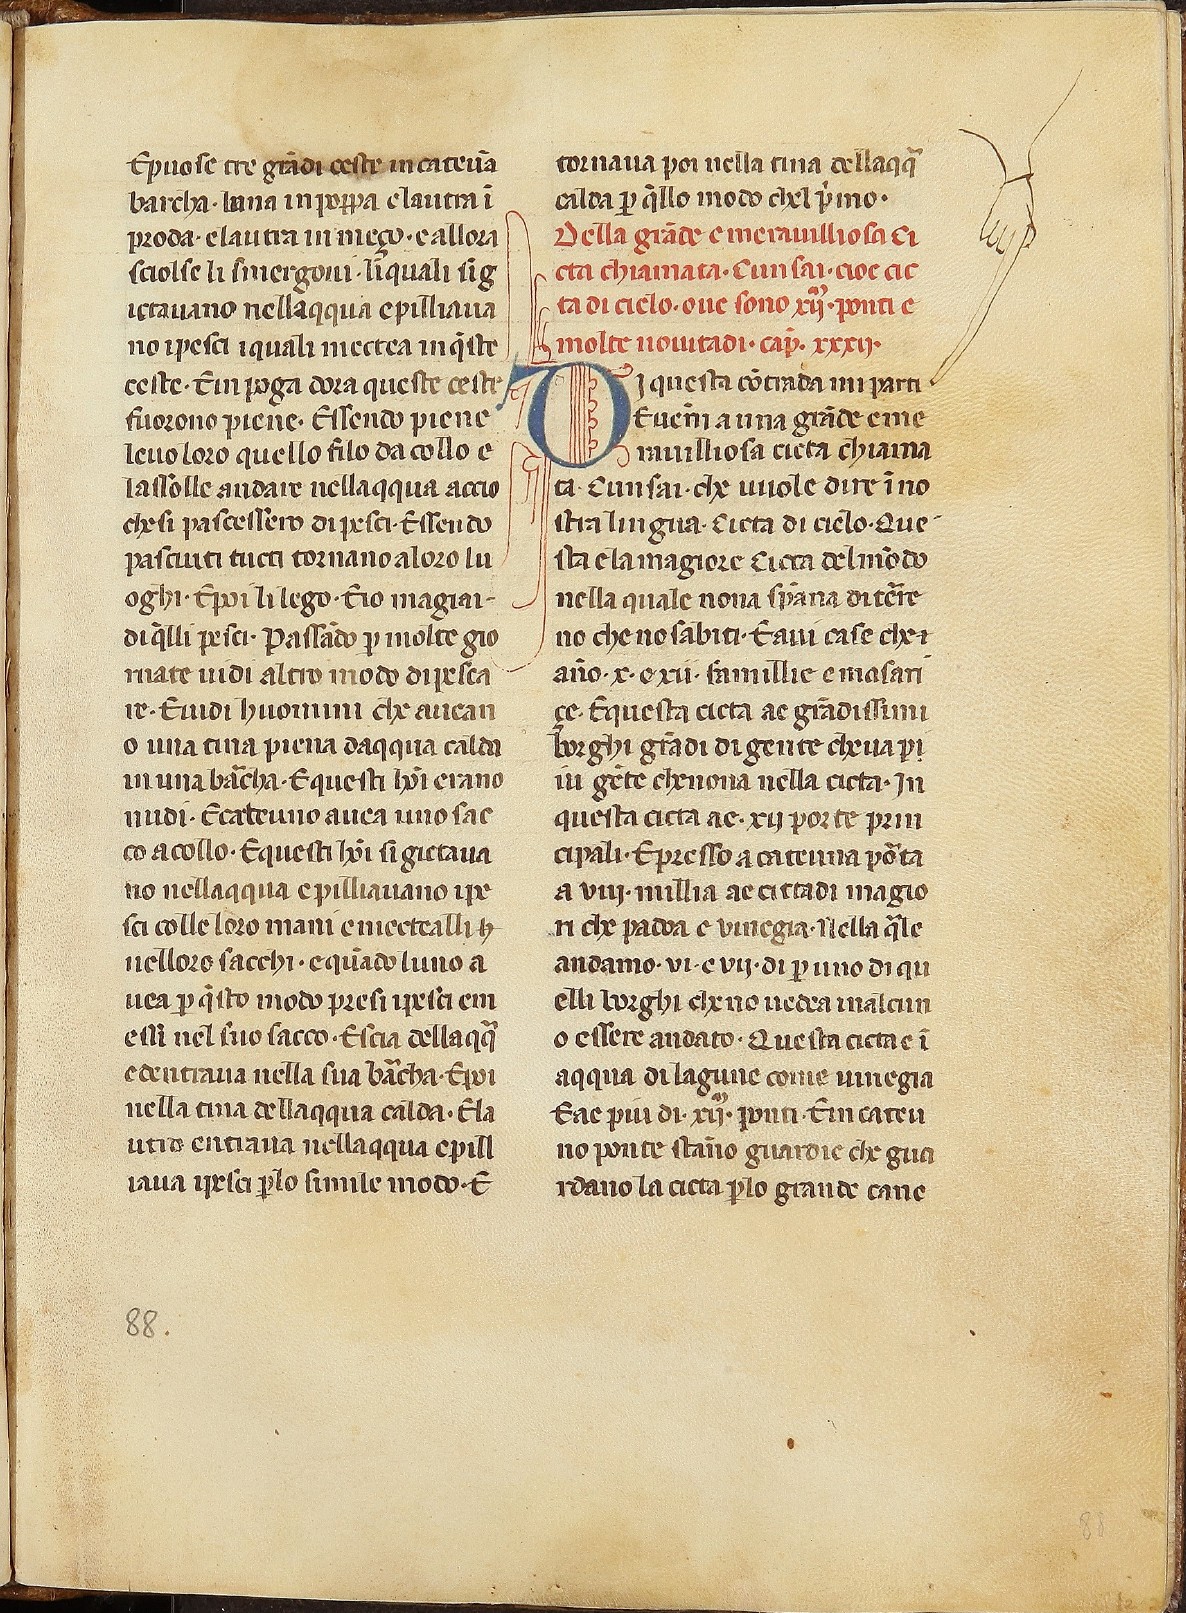 Epuose tre grādi ceste in cateūa
barcha· luna in poppa e lautra ī
proda· e lautra in meço· e allora
sciolse li smergoni· li quali sig
ictauano nellaqqua e pilliaua
no i pesci i quali mectea in q̄ste
ceste· E in poga dora queste ceste
fuorono piene· Essendo piene
leuo loro quello filo da collo e
lassolle andare nellaqqua accio
che si pascessero di pesci· Essendo
pasciuti tucti tornano a loro lu
oghi· E poi li lego· E io magiai
di q̄lli pesci· Passādo p molte gio
rnate uidi altro modo di pesca
re· E uidi huomini che auean
o una tina piena daqqua calda
in una bārcha· E questi hōi erano
nudi· E cateuno auea uno sac
co a collo· E questi hōi si gictaua
no nellaqqua e pilliauano i pe
sci colle loro mani e mectealli
nelloro sacchi· e quādo luno a
uea p q̄sto modo presi i pesci em
essi nel suo sacco· Escia dellaqq̄
ed entraua nella sua bārcha· E poi
nella tina dellaqqua calda· E la
utro entraua nellaqqua e pill
iaua i pesci p lo simile modo· E
tornaua poi nella tina dellaqq̄
calda p q̄llo modo chel p̄mo·
Della grāde e merauilliosa ci
cta chiamata· Cunsai· cioe cic
ta di cielo· oue sono xijᵐ· ponti e
molte nouitadi· cap̄· xxxij·
DI questa cōtrada mi parti
E uenni a una grāde e me
rauilliosa cicta chiama
ta· Cunsai· che uuole dire ī no
stra lingua· Cicta di cielo· Que
sta e la magiore Cicta del mōdo
nella quale nona spāna di tērre
no che no sabiti· E aui case che
āno· x· o xii· famillie e masari
çe· E questa cicta ae grādissimi
borghi grādi di gente che ua pi
iu gēte che nona nella cicta· In
questa cicta ae· xij porte prin
cipali· E presso a cateuna pōta
a viij· millia ae cittadi magio
ri che padoa e vinegia· Nella q̄le
andamo· vi· e vij· di p uno di qu
elli borghi che no uedea mai alcun
o essere andato· Questa cicta e ī
aqqua di lagune come uinegia
E ae piu di· xijᵐ· ponti· E in cateu
no ponte stāno guardie che gua
rdano la cicta p lo grande cane
88.
88